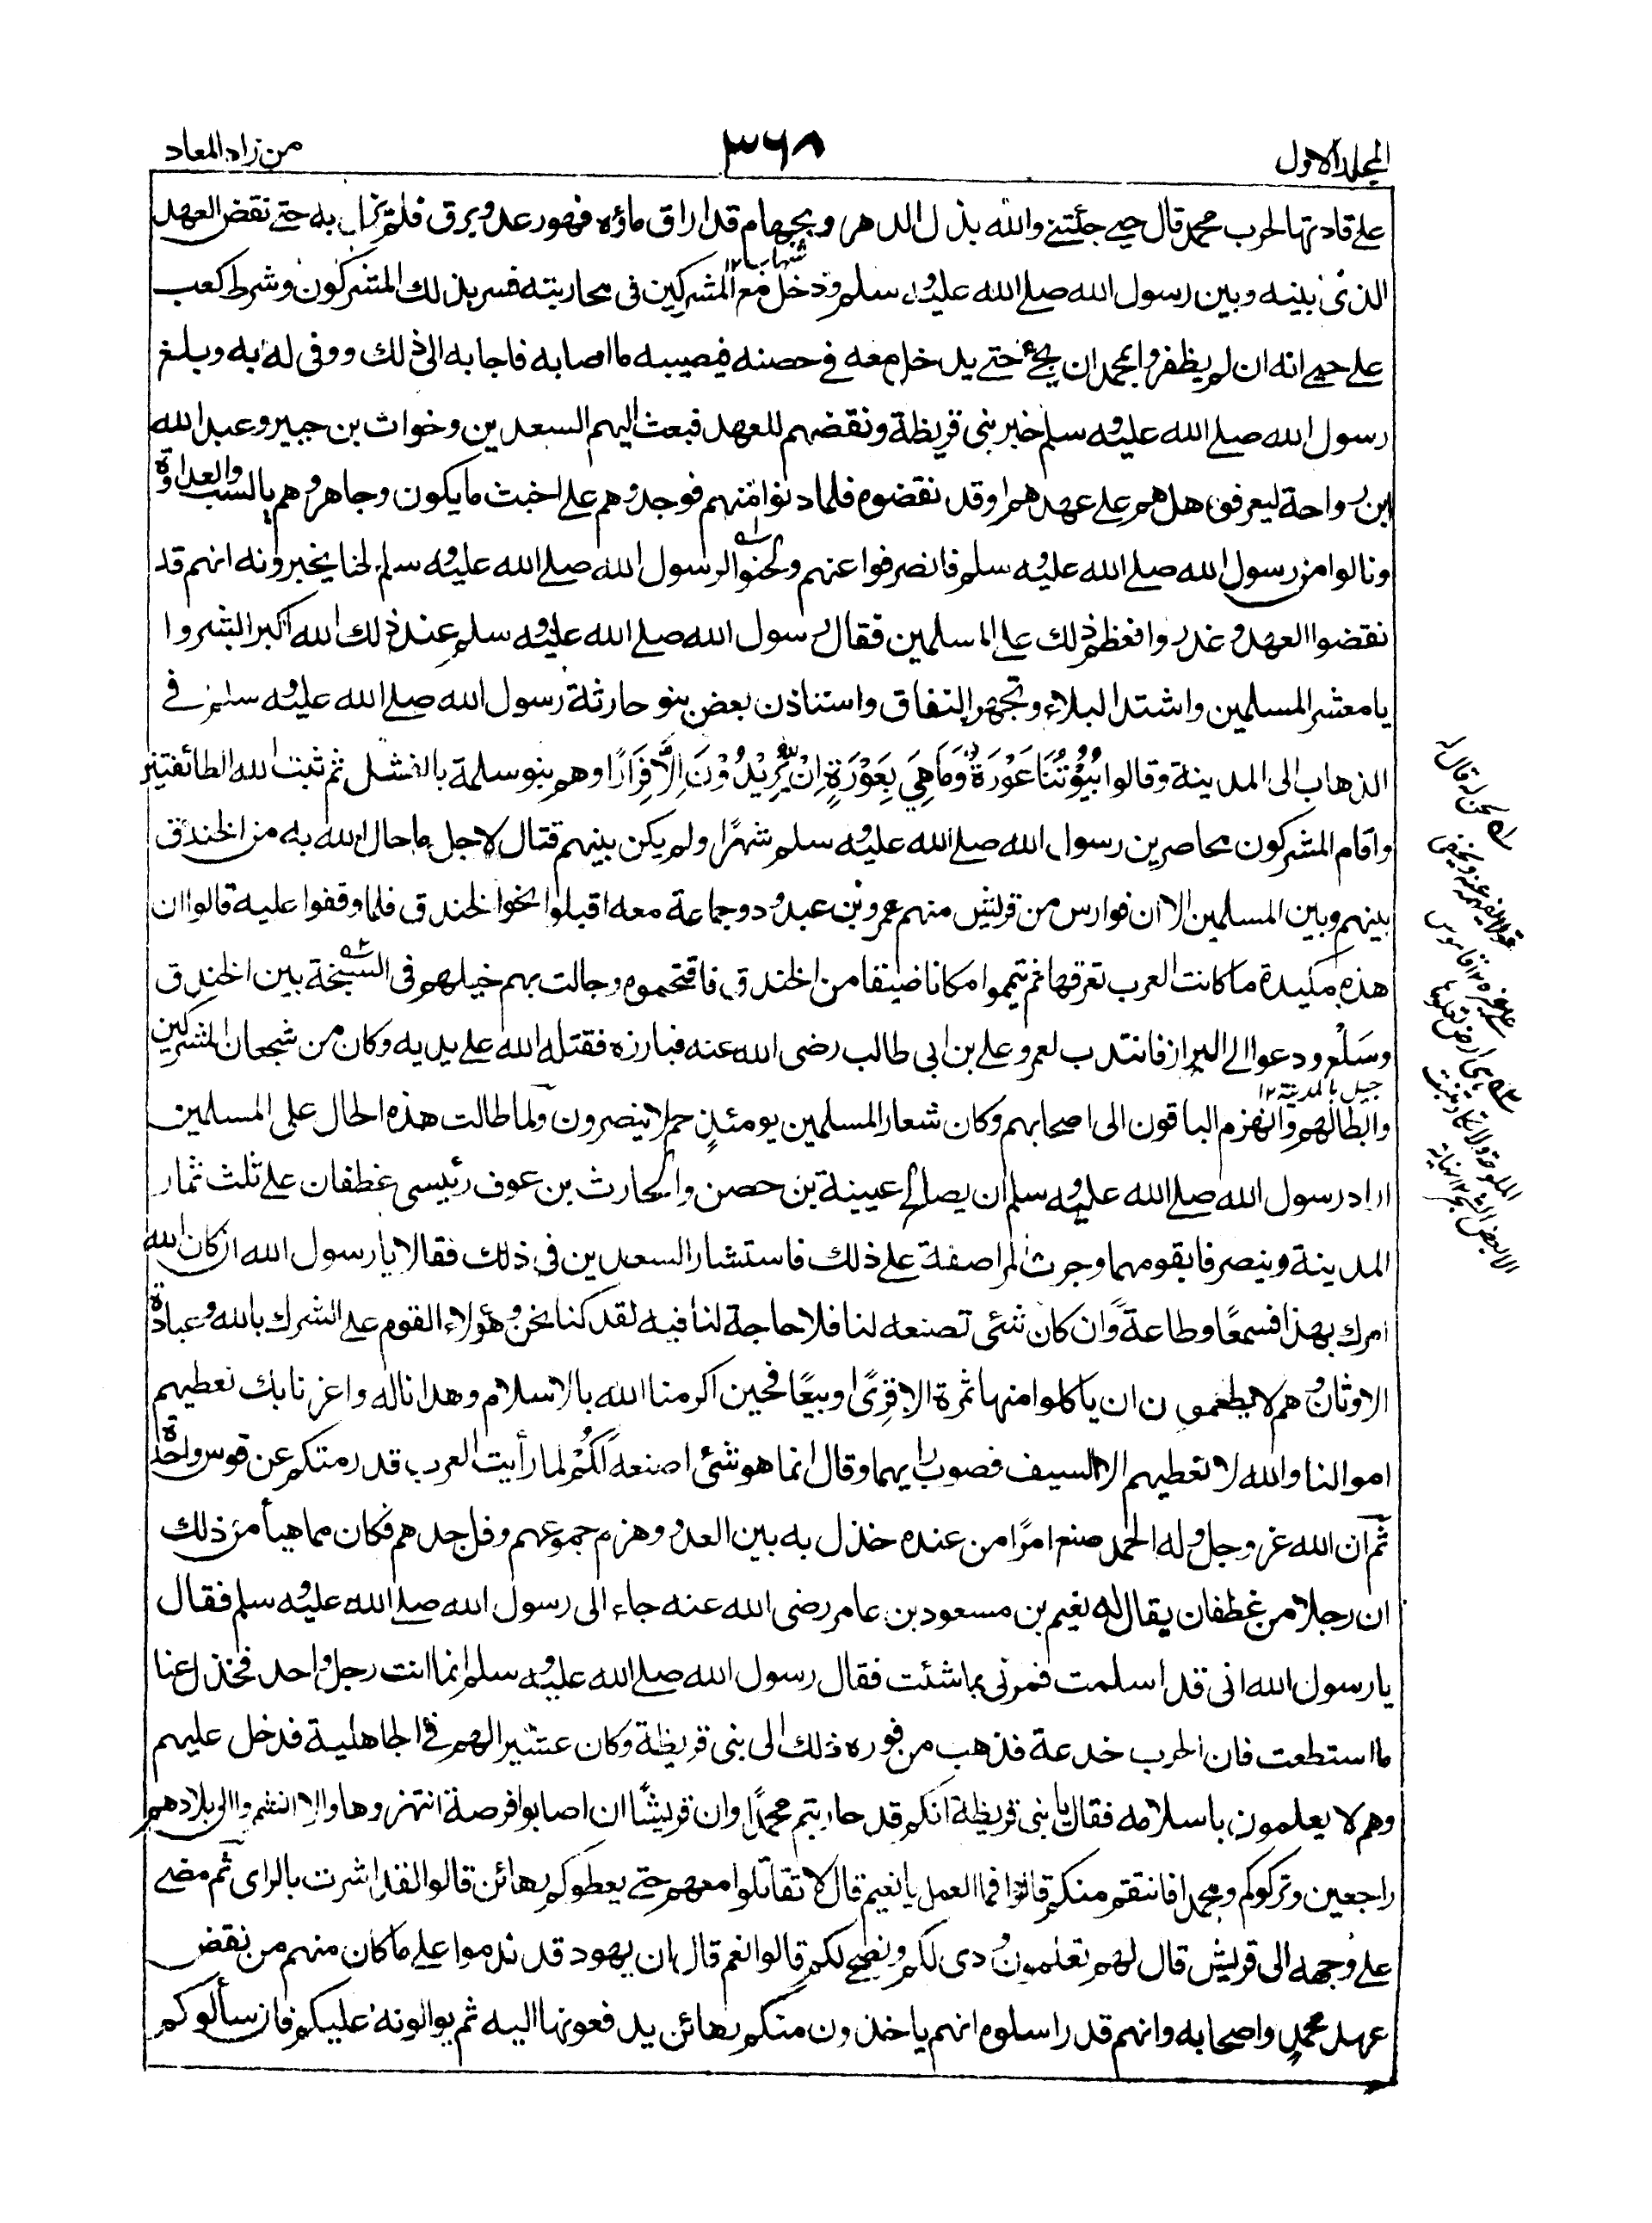 المجلد الاول
٣٦٨
من زاد المعاد
على قادتها لحرب محمد قال حيي جئتني والله بذل الدهر وبجهام قد اراق ماؤه فهو رعد وبرق فلم يزل به حتى نقض العهد
شهاب ١٢
الذى بينه وبين رسول الله صلے الله عليه وسلم ودخل مع المشركين فى محاربته فسر بذلك المشركون وشرط كعب
على حيي انه ان لم يظفروا بمحمد ان يجئ حتے يدخل معه فے حصنه فيصيبه ما اصابه فاجابه الى ذلك ووفى له به وبلغ
رسول الله صلے الله عليه وسلم خبر بنى قريظة ونقضهم للعهد فبعث اليهم السعدين وخوات بن جبير وعبد الله
ابن رواحة ليعرفوا هل هم على عهدهم او قد نقضوه فلما دنوا منهم فوجدوهم على اخبث ما يكون وجاهروهم بالسب والعداوة
ونالوا من رسول الله صلے الله عليه وسلم فانصرفوا عنهم ولحنوا لرسول الله صلے الله عليه وسلم لحنا يخبرونه انهم قد
نقضوا العهد وغدروا فعظم ذلك على المسلمين فقال رسول الله صلے الله عليه وسلم عند ذلك الله اكبر ابشروا
يا معشر المسلمين واشتد البلاء وتجهر النفاق واستاذن بعض بنو حارثة رسول الله صلے الله عليه وسلم فے
الذهاب الى المدينة وقالوا بُيُوْتُنَا عَوْرَةٌ وَمَا هِيَ بِعَوْرَةٍ اِنْ يُّرِيْدُوْنَ اِلَّا فِرَارًا وهم بنو سلمة بالفشل ثم ثبت الله الطائفتين
واقام المشركون محاصرين رسول الله صلے الله عليه وسلم شهرًا ولم يكن بينهم قتال لاجل ما حال الله به من الخندق
بينهم وبين المسلمين الا ان فوارس من قريش منهم عمرو بن عبد ود وجماعة معه اقبلوا نحو الخندق فلما وقفوا عليه قالوا ان
هذه مكيدة ما كانت العرب تعرفها ثم تيمموا مكانا ضيقا من الخندق فاقتحموه وجالت بهم خيلهم فى السبخة بين الخندق
وسَلْع ودعوا الى البراز فانتدب لعمرو على بن ابى طالب رضى الله عنه فبارزه فقتله الله على يديه وكان من شجعان المشركين
جبل بالمدينة ١٢
وابطالهم وانهزم الباقون الى اصحابهم وكان شعار المسلمين يومئذٍ حم لا ينصرون ولما طالت هذه الحال على المسلمين
اراد رسول الله صلے الله عليه وسلم ان يصالح عيينة بن حصن والحارث بن عوف رئيسى غطفان على ثلث ثمار
المدينة وينصرفا بقومهما وجرت المراصفة على ذلك فاستشار السعدين فى ذلك فقالا يا رسول الله ان كان الله
امرك بهذا فسمعًا وطاعةً وان كان شئى تصنعه لنا فلا حاجة لنا فيه لقد كنا نحن وهؤلاء القوم على الشرك بالله وعبادة
الاوثان وهم لا يطمعون ان ياكلوا منها ثمرة الا قِرًى او بيعًا فحين اكرمنا الله بالاسلام وهدانا له واعزنا بك نعطيهم
اموالنا والله لا نعطيهم الا السيف فصوب رايهما وقال انما هو شئى اصنعه لَكُمْ لما رأيت العرب قد رمتكم عن قوس واحدة
ثم ان الله عز وجل وله الحمد صنع امرًا من عنده خذل به بين العدو وهزم جموعهم وفل حدهم فكان مما هيأ من ذلك
ان رجلا من غطفان يقال له نعيم بن مسعود بن عامر رضى الله عنه جاء الى رسول الله صلے الله عليه وسلم فقال
يا رسول الله انى قد اسلمت فمرنى بما شئت فقال رسول الله صلے الله عليه وسلم انما انت رجل واحد فخذل عنا
ما استطعت فان الحرب خدعة فذهب من فوره ذلك الى بنى قريظة وكان عشيرا لهم فے الجاهلية فدخل عليهم
وهم لا يعلمون باسلامه فقال يا بنى قريظة انكم قد حاربتم محمدًا وان قريشًا ان اصابوا فرصة انتهزوها والا انشمروا الى بلادهم
راجعين وتركوكم ومحمدا فانتقم منكم قالوا فما العمل يا نعيم قال لا تقاتلوا معهم حتے يعطوكم رهائن قالوا لقد اشرت بالراى ثم مضے
على وجهه الى قريش قال لهم تعلمون ودى لكم ونصحى لكم قالوا نعم قال ان يهود قد ندموا على ما كان منهم من نقض
عهد محمدٍ واصحابه وانهم قد راسلوه انهم ياخذون منكم رهائن يدفعونها اليه ثم يوالونه عليكم فان سألوكم
لحن له قال له
قولا يفهمه عنه ويخفى
على غيره ١٢ قاموس
هى ارض تعلوها
الملوحة ولا تكاد تنبت
الا بعض الشجر ١٢ نهاية